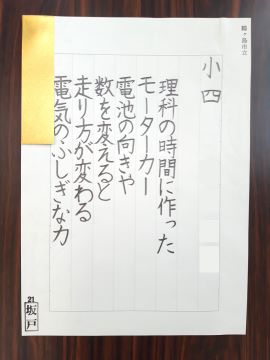 鶴ヶ島市立
小四
理科の時間に作った
モーターカー
電池の向きや
数を変えると
走り方が変わる
電気のふしぎな力
21
坂戸